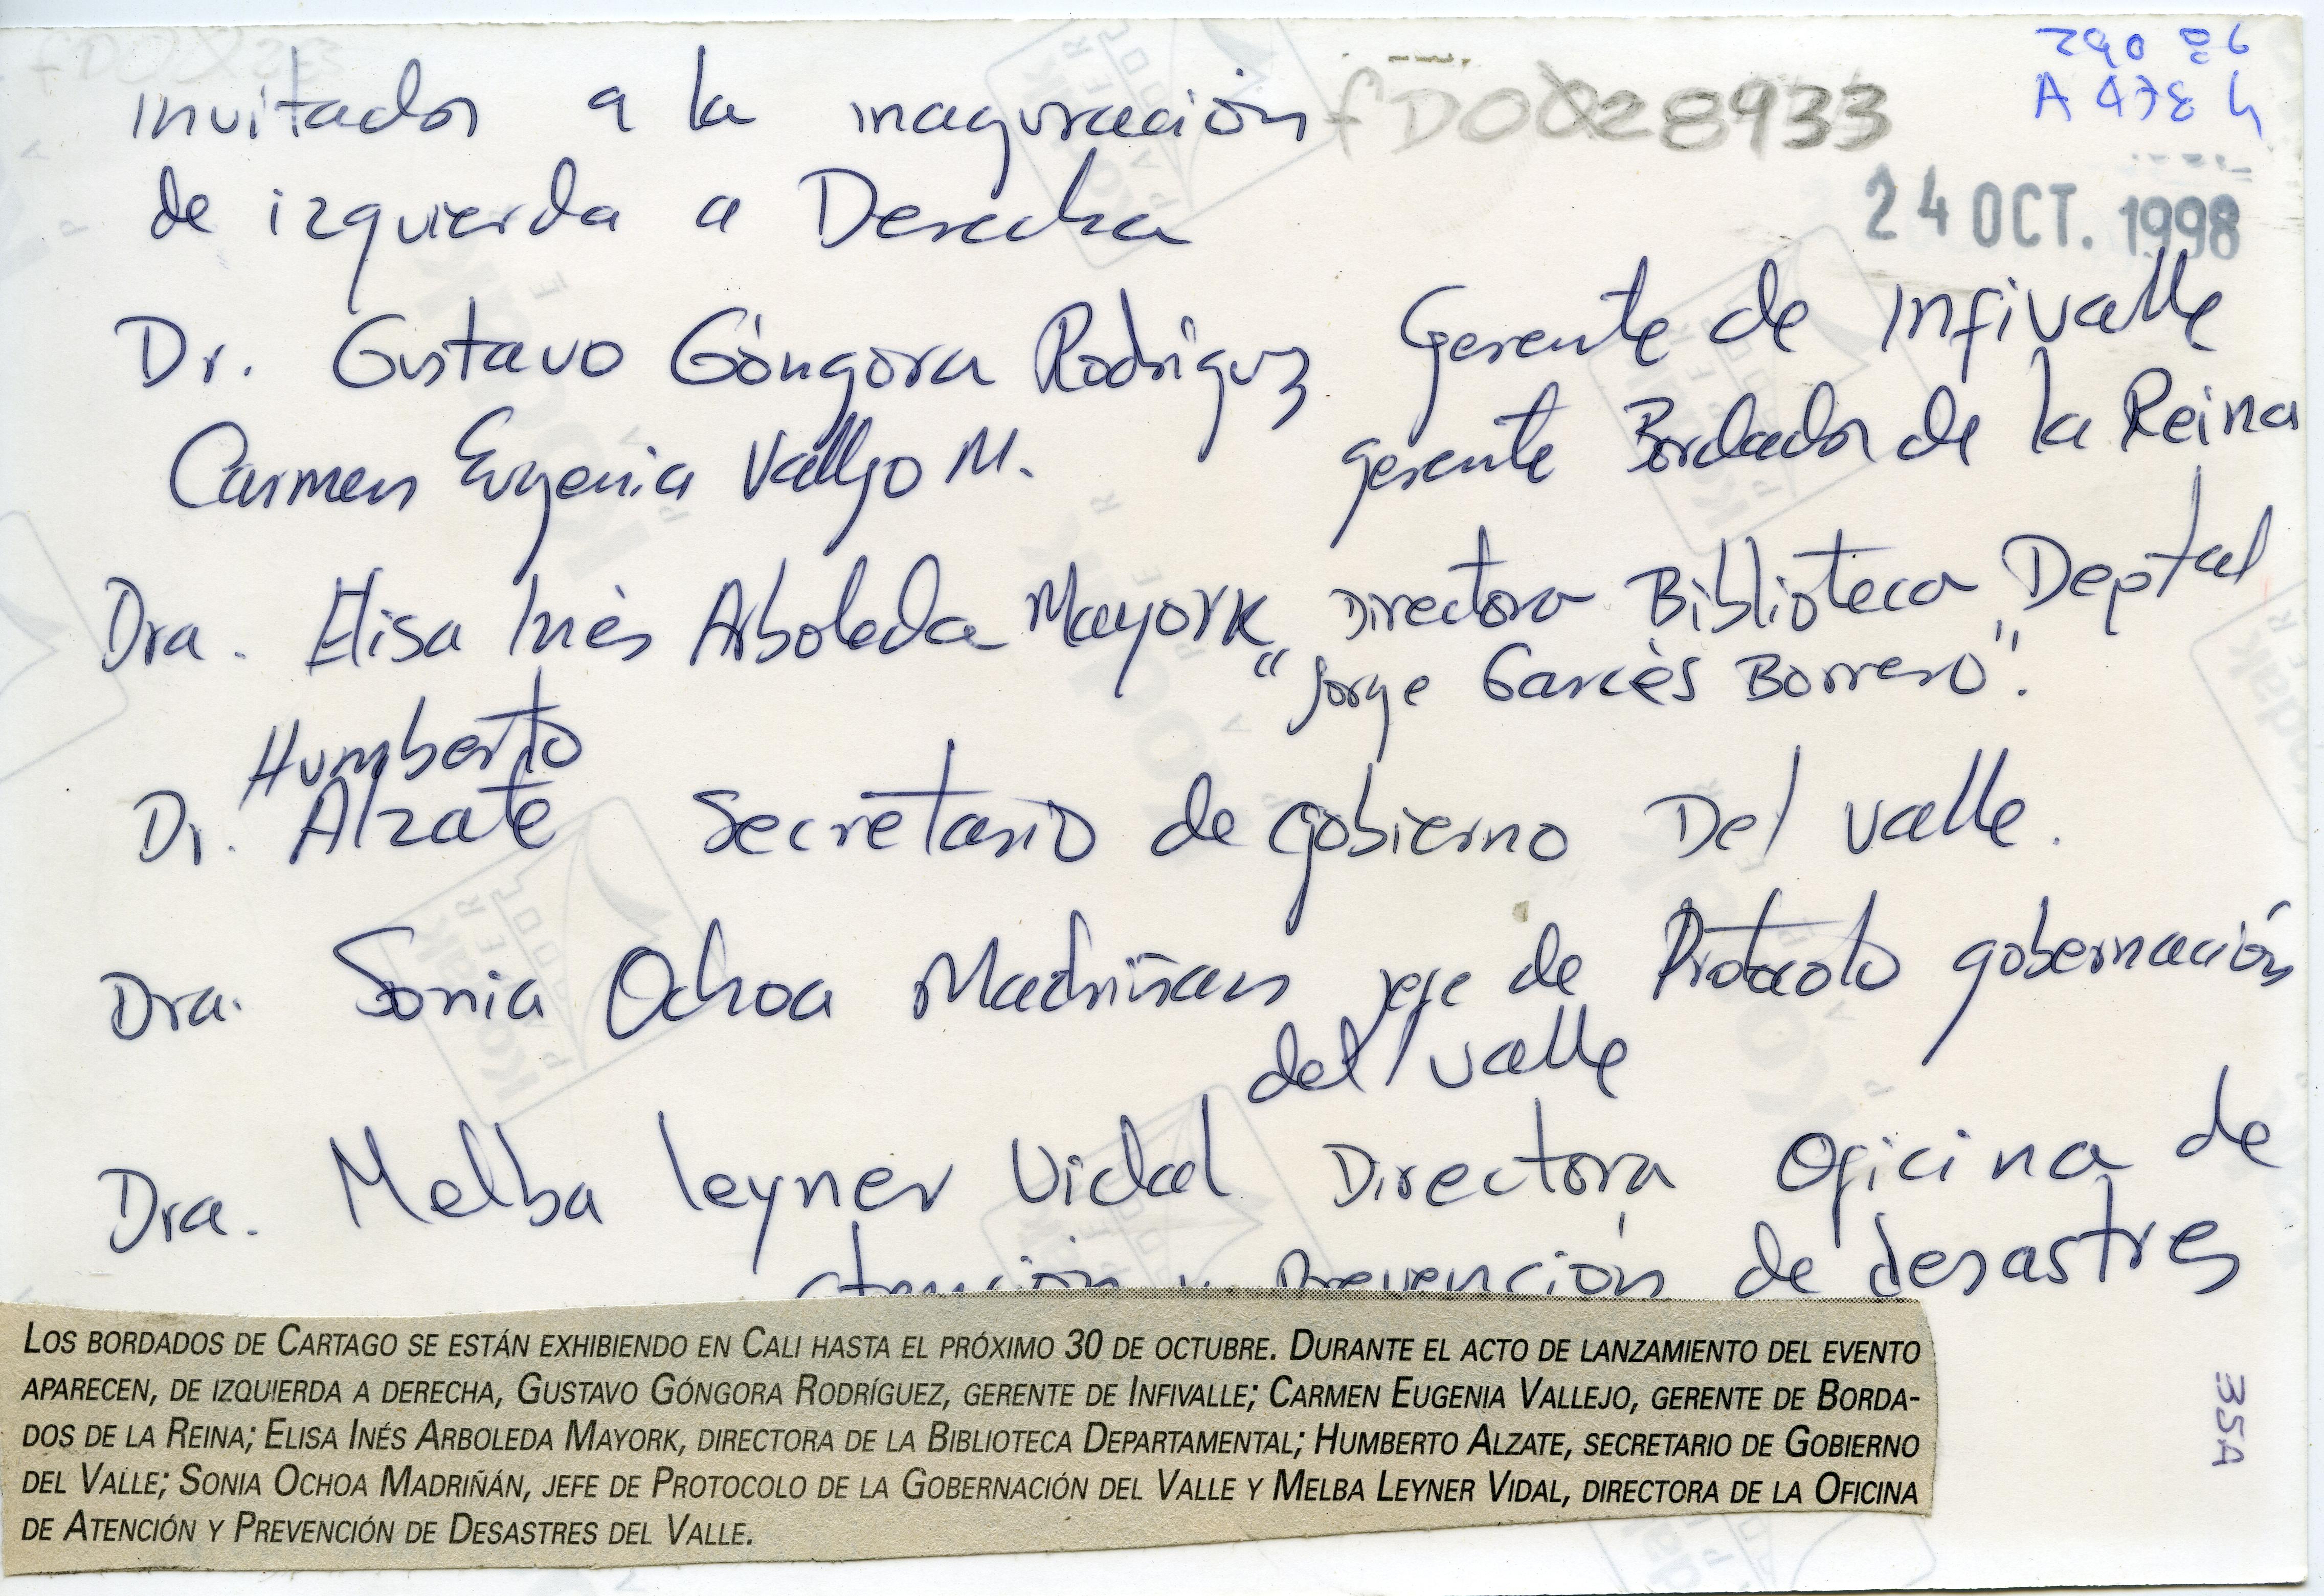 invitados a la inaguración
fD0028933
290 86
A 478 h
de izquierda a Derecha
24 OCT. 1998
Dr. Gustavo Góngora Rodríguz Gerente de Infivalle
Carmen Eugenia Vallejo M. gerente Bordados de la Reina
Dra. Elisa Inés Arboleda Mayork Directora Biblioteca Deptal
"Jorge Garcés Borrero".
Humberto
Dr. Alzate Secretario de gobierno Del Valle.
Dra. Sonia Ochoa Madriñan jefe de Protocolo gobernación
del Valle
Dra. Melba leyner Vidal Directora Oficina de
atención y prevención de desastres
LOS BORDADOS DE CARTAGO SE ESTÁN EXHIBIENDO EN CALI HASTA EL PRÓXIMO 30 DE OCTUBRE. DURANTE EL ACTO DE LANZAMIENTO DEL EVENTO
APARECEN, DE IZQUIERDA A DERECHA, GUSTAVO GÓNGORA RODRÍGUEZ, GERENTE DE INFIVALLE; CARMEN EUGENIA VALLEJO, GERENTE DE BORDA-
DOS DE LA REINA; ELISA INÉS ARBOLEDA MAYORK, DIRECTORA DE LA BIBLIOTECA DEPARTAMENTAL; HUMBERTO ALZATE, SECRETARIO DE GOBIERNO
DEL VALLE; SONIA OCHOA MADRIÑÁN, JEFE DE PROTOCOLO DE LA GOBERNACIÓN DEL VALLE Y MELBA LEYNER VIDAL, DIRECTORA DE LA OFICINA
DE ATENCIÓN Y PREVENCIÓN DE DESASTRES DEL VALLE.
35A